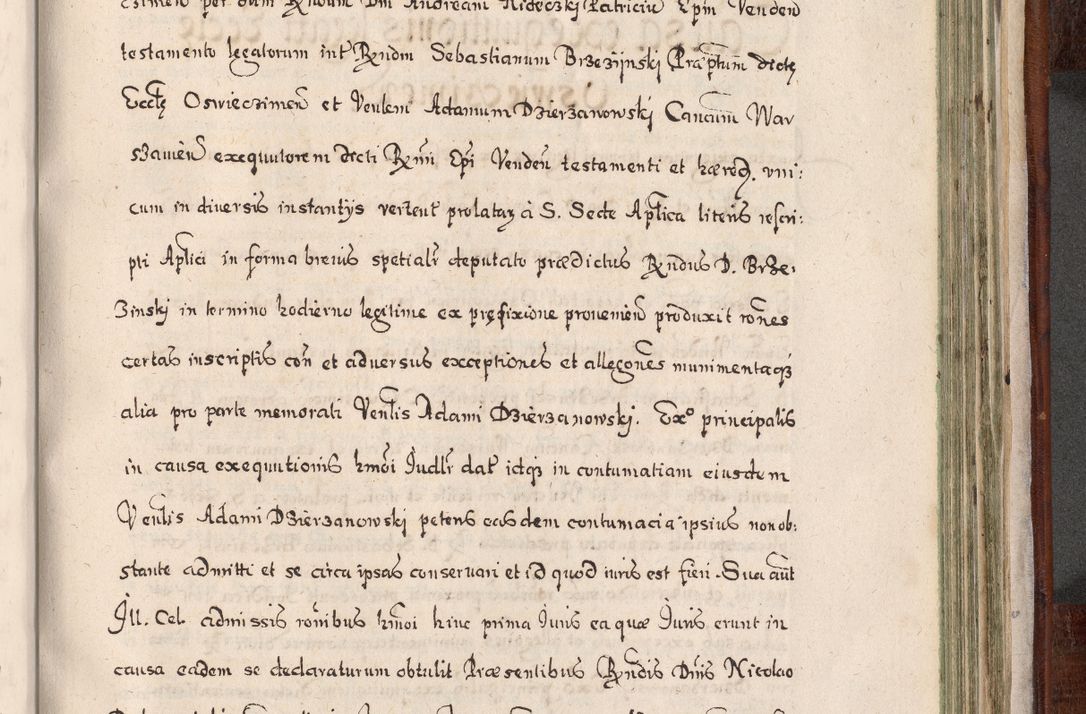 czimen per olim Rndum Dm Andream Nideczki Patriciu Epm Venden
testamento legatorum int Rndm Sebastianum Brzezijnski Præptum dictę
Ecctę Oswieczimen et Venlem Adamum Dzierzanowski Cancum War
szavien exequutorem dicti Rmi Epi Venden testamenti et hæred. vni:
cum in diversis instantijs vertent prolatay à S. Sede Aplica literis rescri:
pti Aplici in forma brevis spetialr deputato prædictus Rndus D. Brze:
zinski in termino hodierno legitime ex pręfixione provenien produxit rones
certas inscriptis con et adversus exceptiones et allegones munimentaq
alia pro parte memorati Venlis Adami Dzierzanowski. Exo principalis
in causa exequutionis hmoi Judlr dat idq in contumatiam eiusdem
Venlis Adami Dzierzanowski petens eas dem contumacia ipsius non ob:
stante admitti et se circa ipsas conservari et id quod iuris est fieri. Sua aut
Ill. Cel. admissis ronibus hmoi hinc prima Iuris ea quæ Iuris erunt in
causa eadem se declaraturum obtulit Præsentibus Rndis Dnis Nicolao